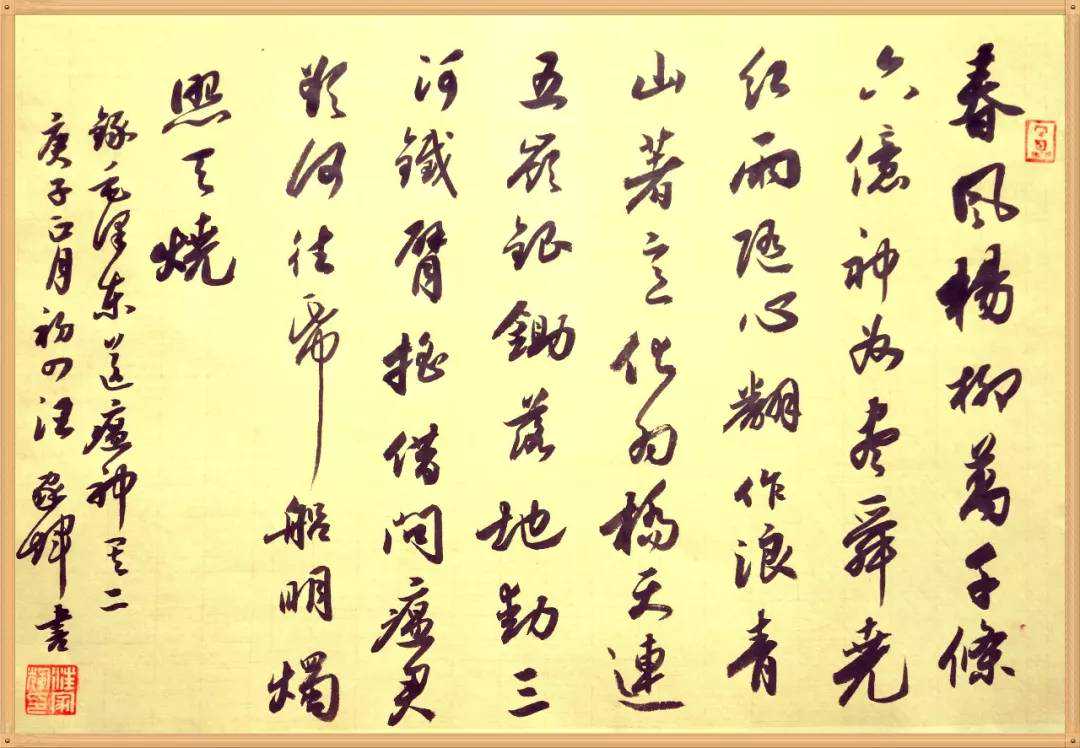 春風楊柳萬千條
六億神州盡舜堯
紅雨随心翻作浪青
山著意化為橋天連
五嶺銀鋤落地動三
河鐵臂摇借問瘟君
欲何往紙船明燭
照天燒
錄毛澤東送瘟神其二
庚子正月初四汪家輝書
汪家輝印